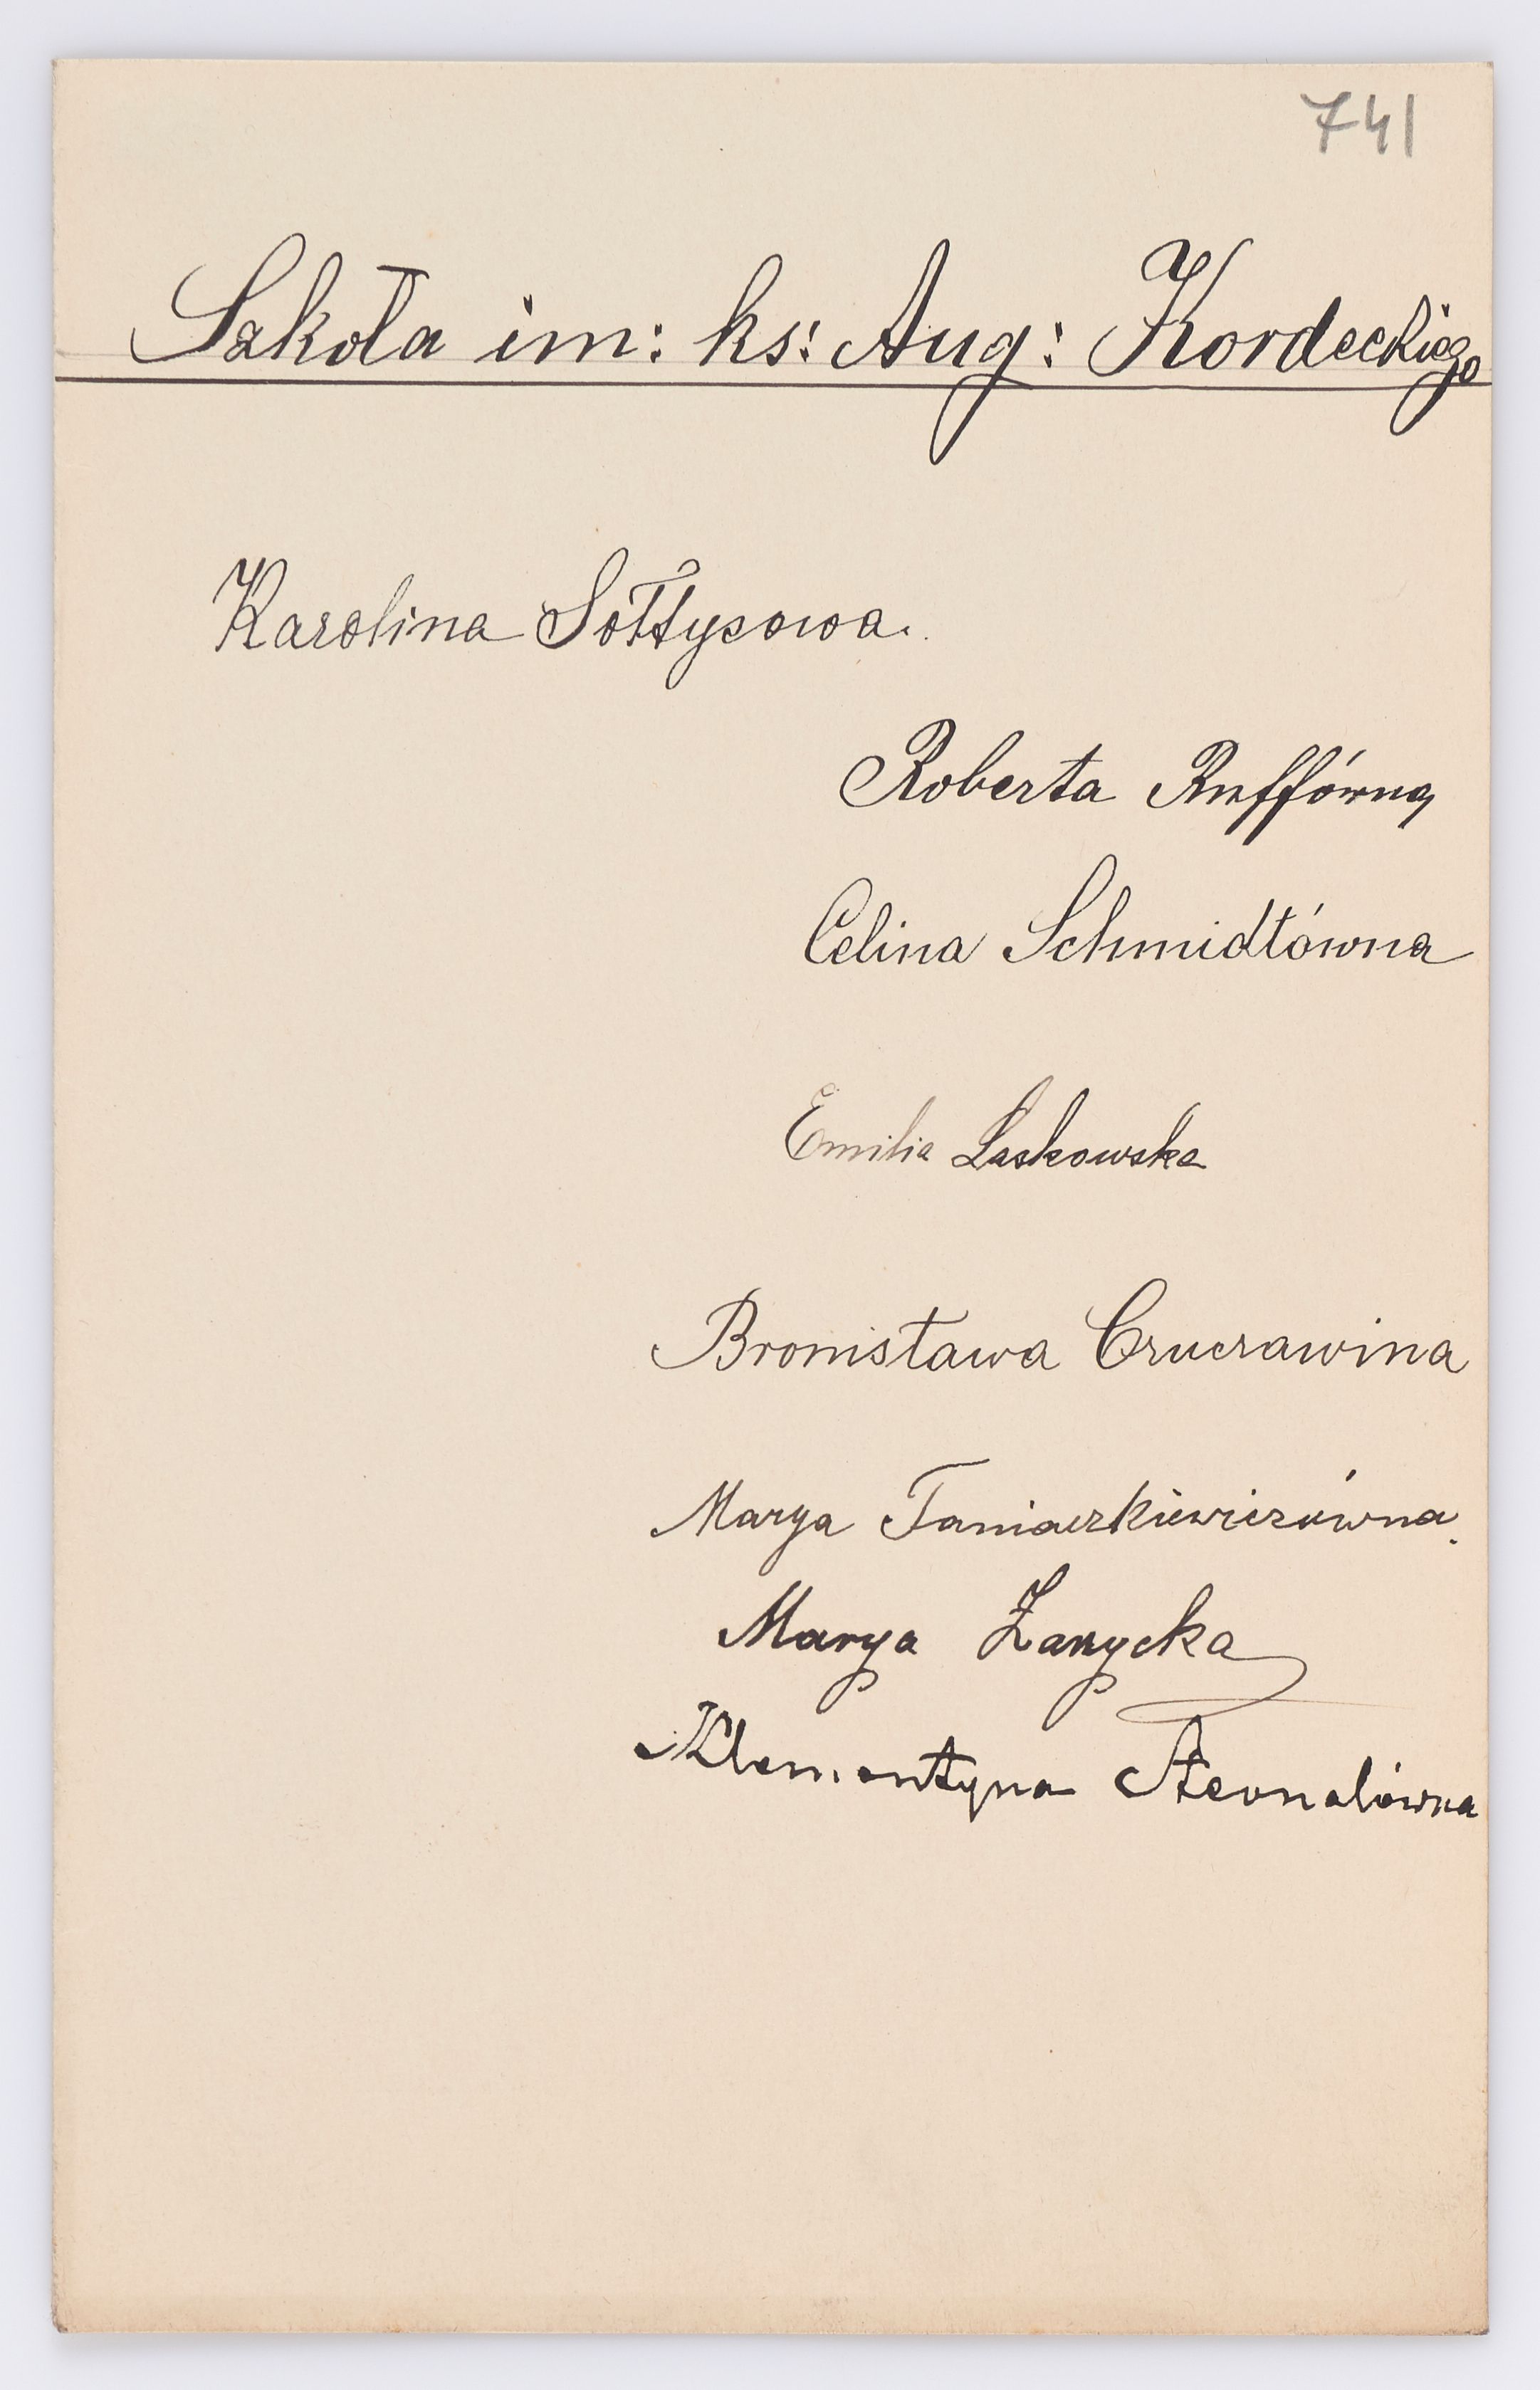 741
Szkoła im: ks: Aug: Kordeckiego
Karolina Sołtysowa.
Roberta Ruffówna
Celina Schmidtówna
Emilia Laskowska
Bronisława Czuczawina
Marya Taniaczkiewiczówna.
Marya Zarzycka
Klementyna